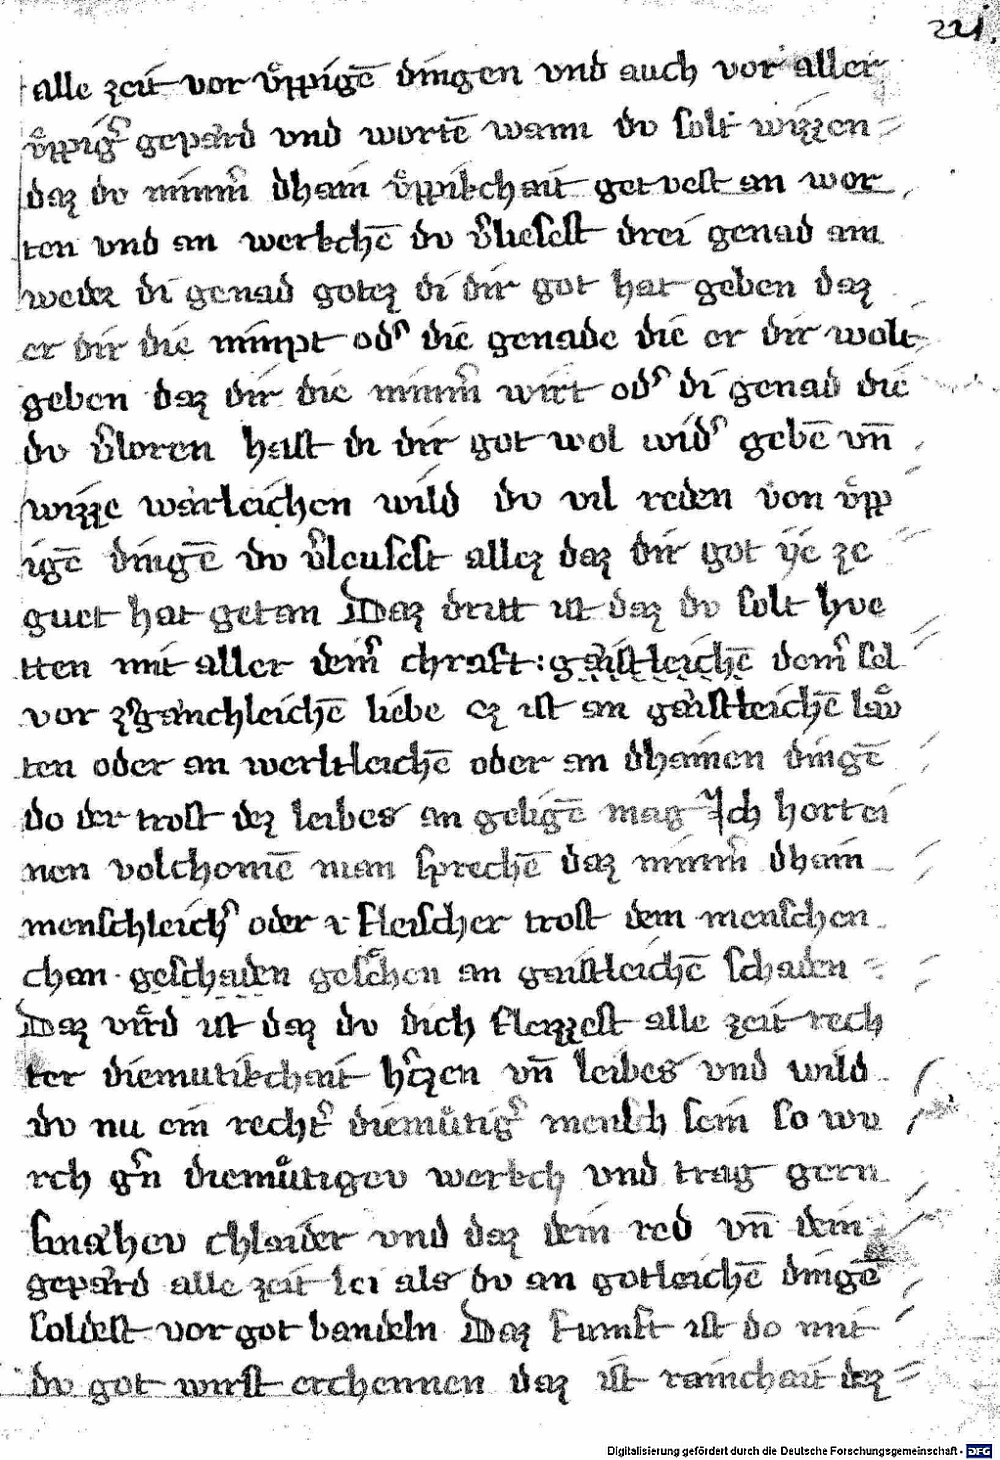 xxi.
alle zeit vor vͦppigē dingen vnd auch vor aller
vͦppig᷑ gepärd vnd wortē wann dv solt wizzen
daz dv nimm᷑ dhain vͦppikchait getvest an wor
ten vnd an werkchē dv v᷑liesest drei genad ain
weder di genad gotez di dir got hat geben daz
er dir die nimpt od᷑ die genade die er dir wolt
geben daz dir die nimm᷑ wirt od᷑ di genad die
dv v᷑loren hast di dir got wol wid᷑ gebē vn̄
wizze wärleichen wild dv vil reden von vͦpp
igē dingē dv v᷑leusest allez daz dir got ye ze
guet hat getan Daz dritt ist daz dv solt hve
tten mit aller dein᷑ chraft gäistleichē dein᷑ sel
vor z᷑gänchleichē liebe ez ist an gäistleichē läv
ten oder an werltleichē oder an dhainen dingē
do der trost dez leibes an geligē mag Ich hort ei
nen volchomē man sprechē daz nimm᷑ dhain
menschleich᷑ oder fleischer trost dem menschen
chan geschaden geschehen an gaistleichē schaden
Daz vird ist daz dv dich fleizzest alle zeit rech
ter diemutikchait h᷑czen vn̄ leibes vnd wild
dv nu ein recht᷑ diemuͤtig᷑ mensch sein so wu
rch g᷑n diemuͤtigev werkch vnd trag gern
smähev chlaider vnd daz dein red vn̄ dein
gepärd alle zeit sei als dv an gotleichē dingē
soldest vor got bandeln Daz fumft ist do mit
dv got wirst erchennen daz ist rainchait dez
Digitalisierung gefördert durch die Deutsche Forschungsgemeinschaft - DFG